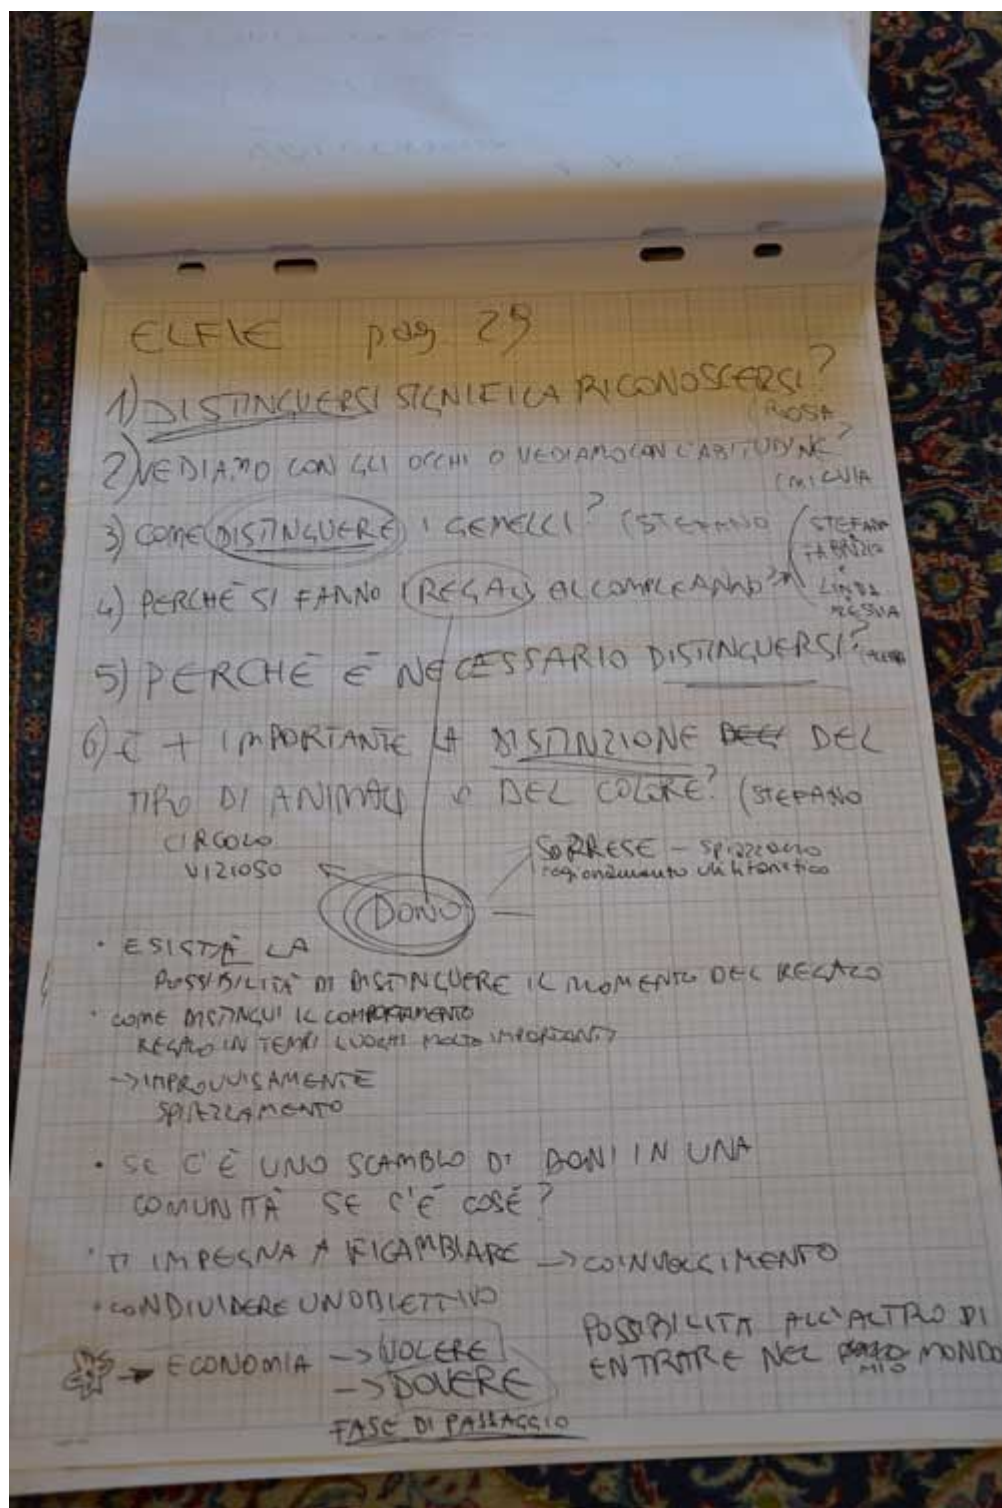 ELFIE pag 29
1) DISTINGUERSI SIGNIFICA RICONOSCERSI?
(ROSA
2) VEDIAMO CON GLI OCCHI O VEDIAMO CON L'ABITUDINE?
3) COME DISTINGUERE I GEMELLI? (STEFANO
4) PERCHÈ SI FANNO I REGALI AL COMPLEANNO?
STEFANO
FABRIZIO
LINDA
5) PERCHÈ È NECESSARIO DISTINGUERSI?
6) È + IMPORTANTE LA DISTINZIONE DEL
TIPO DI ANIMALI O DEL COLORE? (STEFANO
CIRCOLO
VIZIOSO
SORRESE - spiazzano
ragionamento utilitaristico
DONO
• ESISTE LA
POSSIBILITÀ DI DISTINGUERE IL MOMENTO DEL REGALO
• COME DISTINGUI IL COMPORTAMENTO
REGALO IN TEMPI LUOGHI MOLTO IMPORTANTI
→ IMPROVVISAMENTE
SPIAZZAMENTO
• SE C'È UNO SCAMBIO DI DONI IN UNA
COMUNITÀ SE C'È COSÉ?
• TI IMPEGNA A RICAMBIARE → COINVOLGIMENTO
• CONDIVIDERE UN OBIETTIVO
POSSIBILITÀ ALL'ALTRO DI
ENTRARE NEL MIO MONDO
→ ECONOMIA → VOLERE
→ DOVERE
FASE DI PASSAGGIO